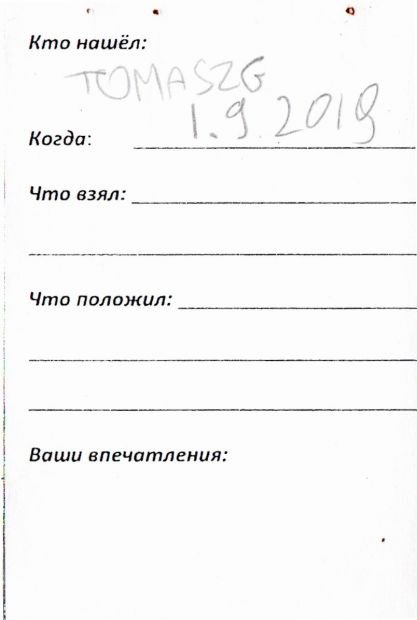 Кто нашёл:
TOMASZG
1.9.2019
Когда:
Что взял:
Что положил:
Ваши впечатления: